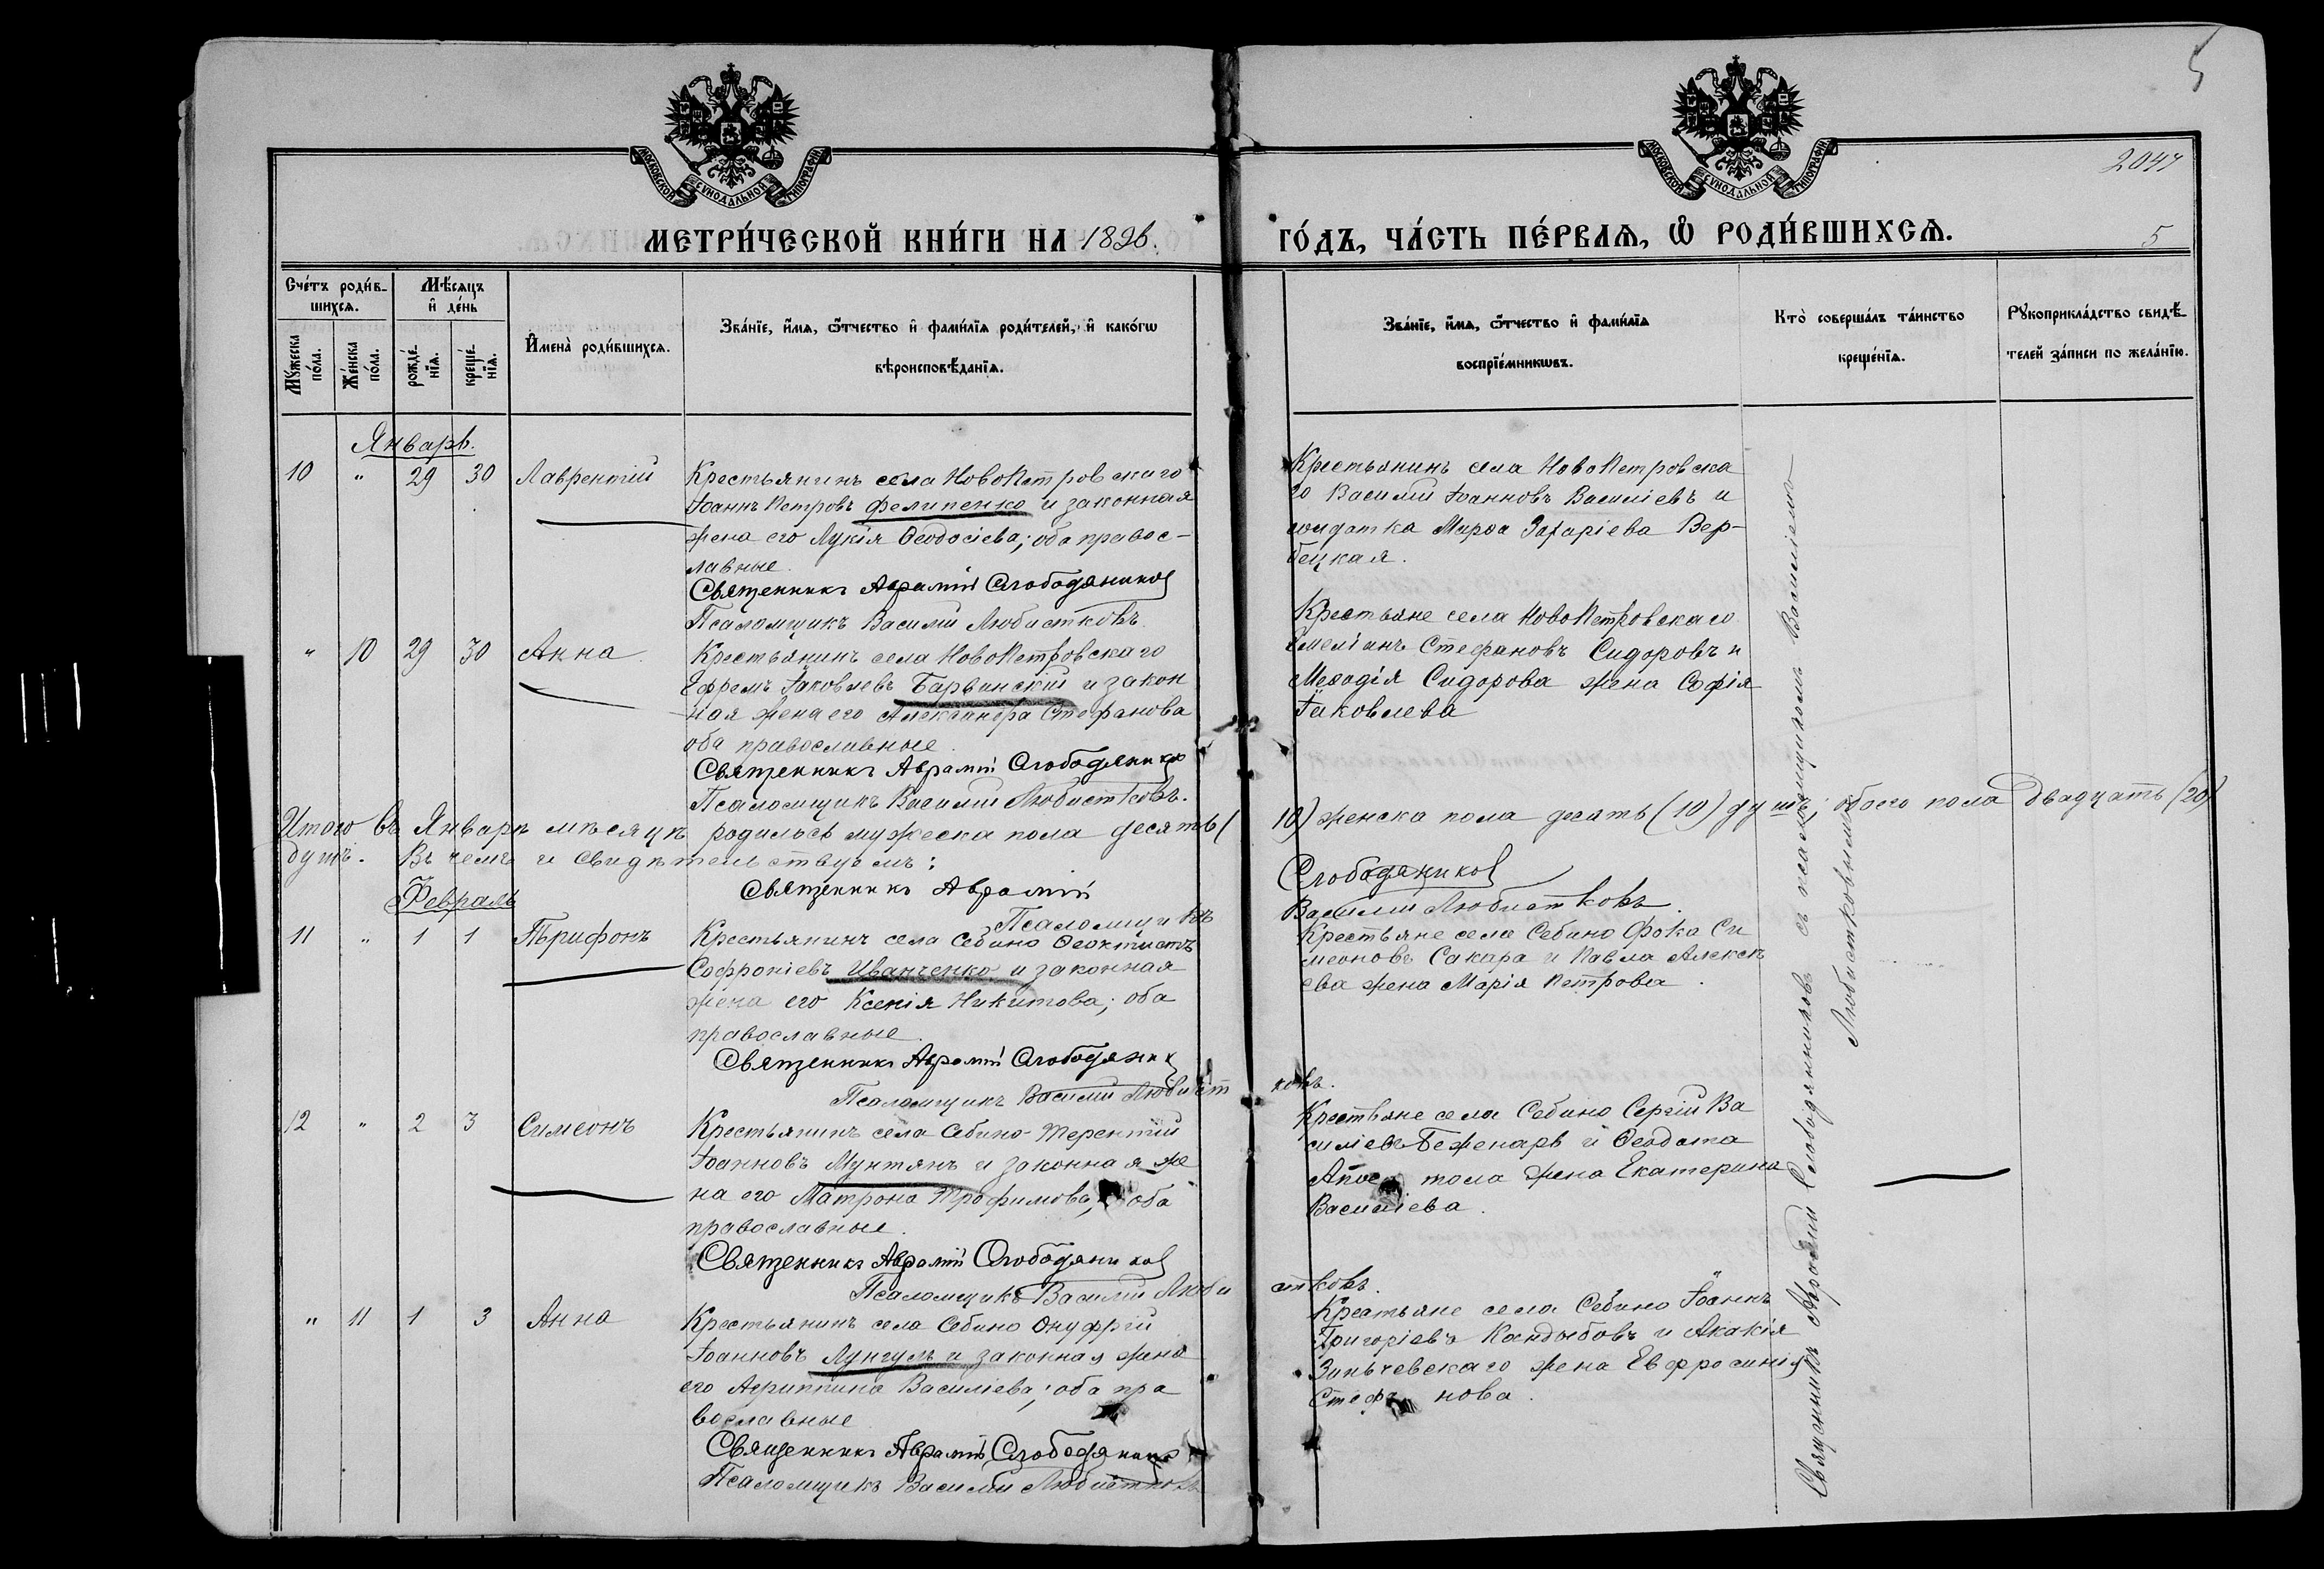 5
МОСКОВСКОЙ СѴНОДАЛЬНОЙ ТИПОГРАФІИ
МОСКОВСКОЙ СѴНОДАЛЬНОЙ ТИПОГРАФІИ
2047
МЕТРИ́ЧЕСКОЙ КНИ́ГИ НА 1896. ГО́ДЪ, ЧА́СТЬ ПЕ́РВАѦ, Ѽ РОДИ́ВШИХСѦ.
5
Сче́тъ роди́в-
шихсѧ.
Мѣ́сѧцъ
и҆ де́нь
Мꙋ́жеска по́ла.
Же́нска по́ла.
рожде́-
нїѧ.
креще́-
нїѧ.
И҆мена̀ роди́вшихсѧ.
Зва́нїе, и҆́мѧ, ѻ҆́тчество и҆ фами́лїѧ роди́телей, и҆ како́гѡ
вѣроисповѣ́данїѧ.
Зва́нїе, и҆́мѧ, ѻ҆́тчество и҆ фами́лїѧ
воспрїе́мникѡвъ.
Кто̀ соверша́лъ та́инство
креще́нїѧ.
Рꙋкоприкла́дство свидѣ́-
телей за́писи по жела́нїю.
Январь.
10 " 29 30 Лаврентій
Крестьянинъ села НовоПетровскаго
Іоаннъ Петровъ Фелипенко и законная
жена его Лукія Ѳеодосіева; оба правос-
лавные.
Священникъ Аврамій Слободяников
Псаломщикъ Василій Любистковъ
Крестьянинъ села НовоПетровска
го Василій Іоанновъ Василіевъ и
солдатка Марѳа Захаріева Вер-
бецкая.
" 10 29 30 Анна
Крестьянинъ села НовоПетровскаго
Ефремъ Іаковлевъ Барвинскій и закон
ная жена его Александра Стефанова
оба православные.
Священникъ Аврамій Слободяников
Псаломщикъ Василій Любистковъ.
Крестьяне села НовоПетровскаго
Емеліанъ Стефановъ Сидоровъ и
Меѳодія Сидорова жена Софія
Іаковлева
Итого въ Январѣ мѣсяцѣ родилось мужеска пола десять (10) женска пола десять (10) душъ; обоего пола двадцать (20)
душъ. Въ чемъ и свидѣтельствуемъ:
Священникъ Аврамій Слободяников
Псаломщикъ Василій Любистковъ.
Февраль
11 " 1 1 Трифонъ
Крестьянинъ села Себино Ѳеоктистъ
Софроніевъ Иванченко и законная
жена его Ксенія Никитова; оба
православные.
Священникъ Аврамій Слободяник
Псаломщикъ Василій Любистковъ.
Крестьяне села Себино Фока Си
меоновъ Сакара и Павла Алексѣ
ева жена Марія Петрова.
12 " 2 3 Симеонъ
Крестьянинъ села Себино Терентій
Іоанновъ Мунтянъ и законная же
на его Матрона Трофимова; оба
православные.
Священникъ Аврамій Слободяников
Псаломщикъ Василій Любистковъ.
Крестьяне села Себино Сергій Ва
силіевъ Беженарь и Ѳеодота
Апостола жена Екатерина
Василіева.
" 11 1 3 Анна
Крестьянинъ села Себино Онуфрій
Іоанновъ Лунгулъ и законная жена
его Агриппина Василіева; оба пра
вославные
Священникъ Аврамій Слободяников
Псаломщикъ Василій Любистковъ
Крестьяне села Себино Іоаннъ
Григоріевъ Кандыбовъ и Акакія
Зиньчевскаго жена Евфросинія
Стефанова.
Священникъ Аврамій Слободянниковъ съ псаломщикомъ Василіемъ
Любистковымъ